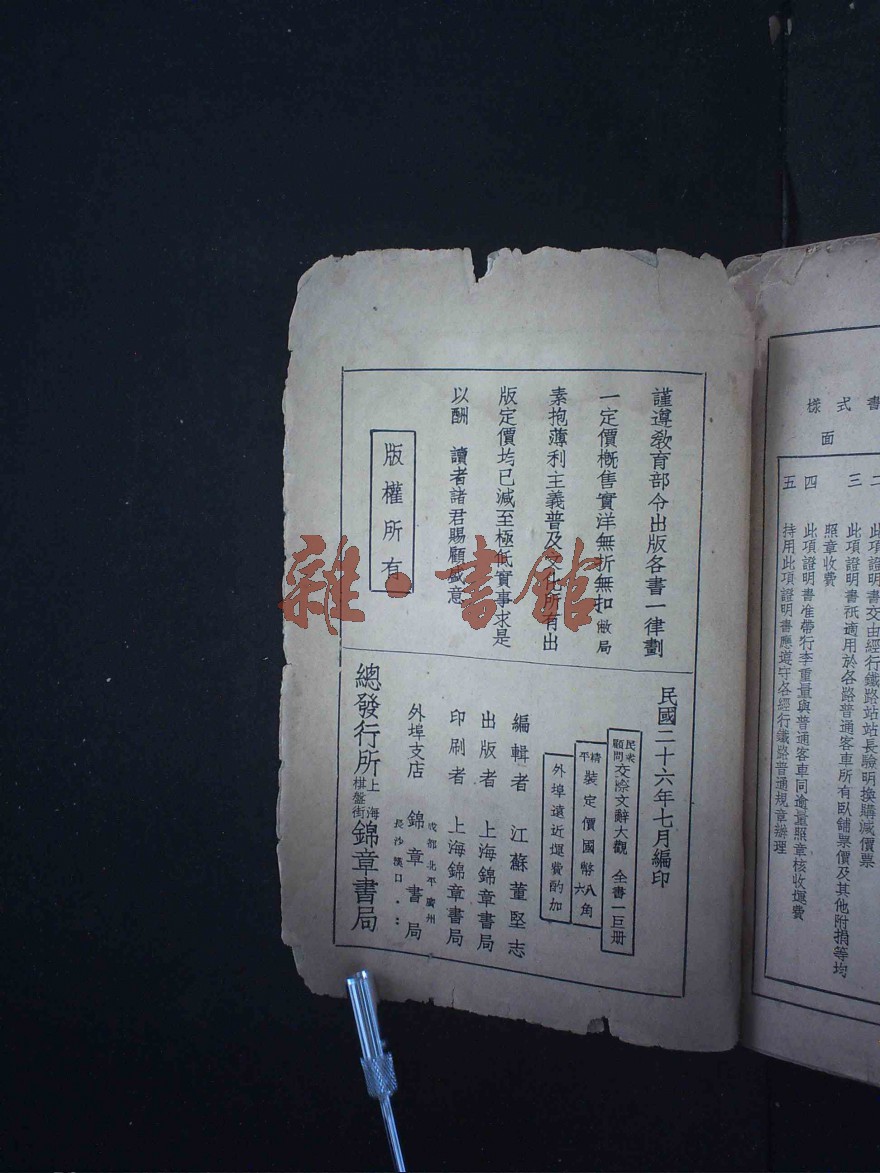 樣式書
面
二 此項證明書交由經行鐵路站站長驗明換購減價票
三 此項證明書祇適用於各路普通客車所有臥舖票價及其他附捐等均
照章收費
四 此項證明書准帶行李重量與普通客車同逾量照章核收運費
五 持用此項證明書應遵守各經行鐵路普通規章辦理
謹遵敎育部令出版各書一律劃
一定價槪售實洋無折無扣敝局
素抱薄利主義普及文化所有出
版定價均已減至極低實事求是
以酬 讀者諸君賜顧盛意
版權所有
民國二十六年七月編印
民衆顧問交際文辭大觀 全書一巨册
精平裝定價國幣八六角
外埠遠近運費酌加
編輯者 江蘇董堅志
出版者 上海錦章書局
印刷者 上海錦章書局
外埠支店 錦章書局 成都 北平 廣州 長沙 漢口
總發行所 上海棋盤街 錦章書局
雜·書館